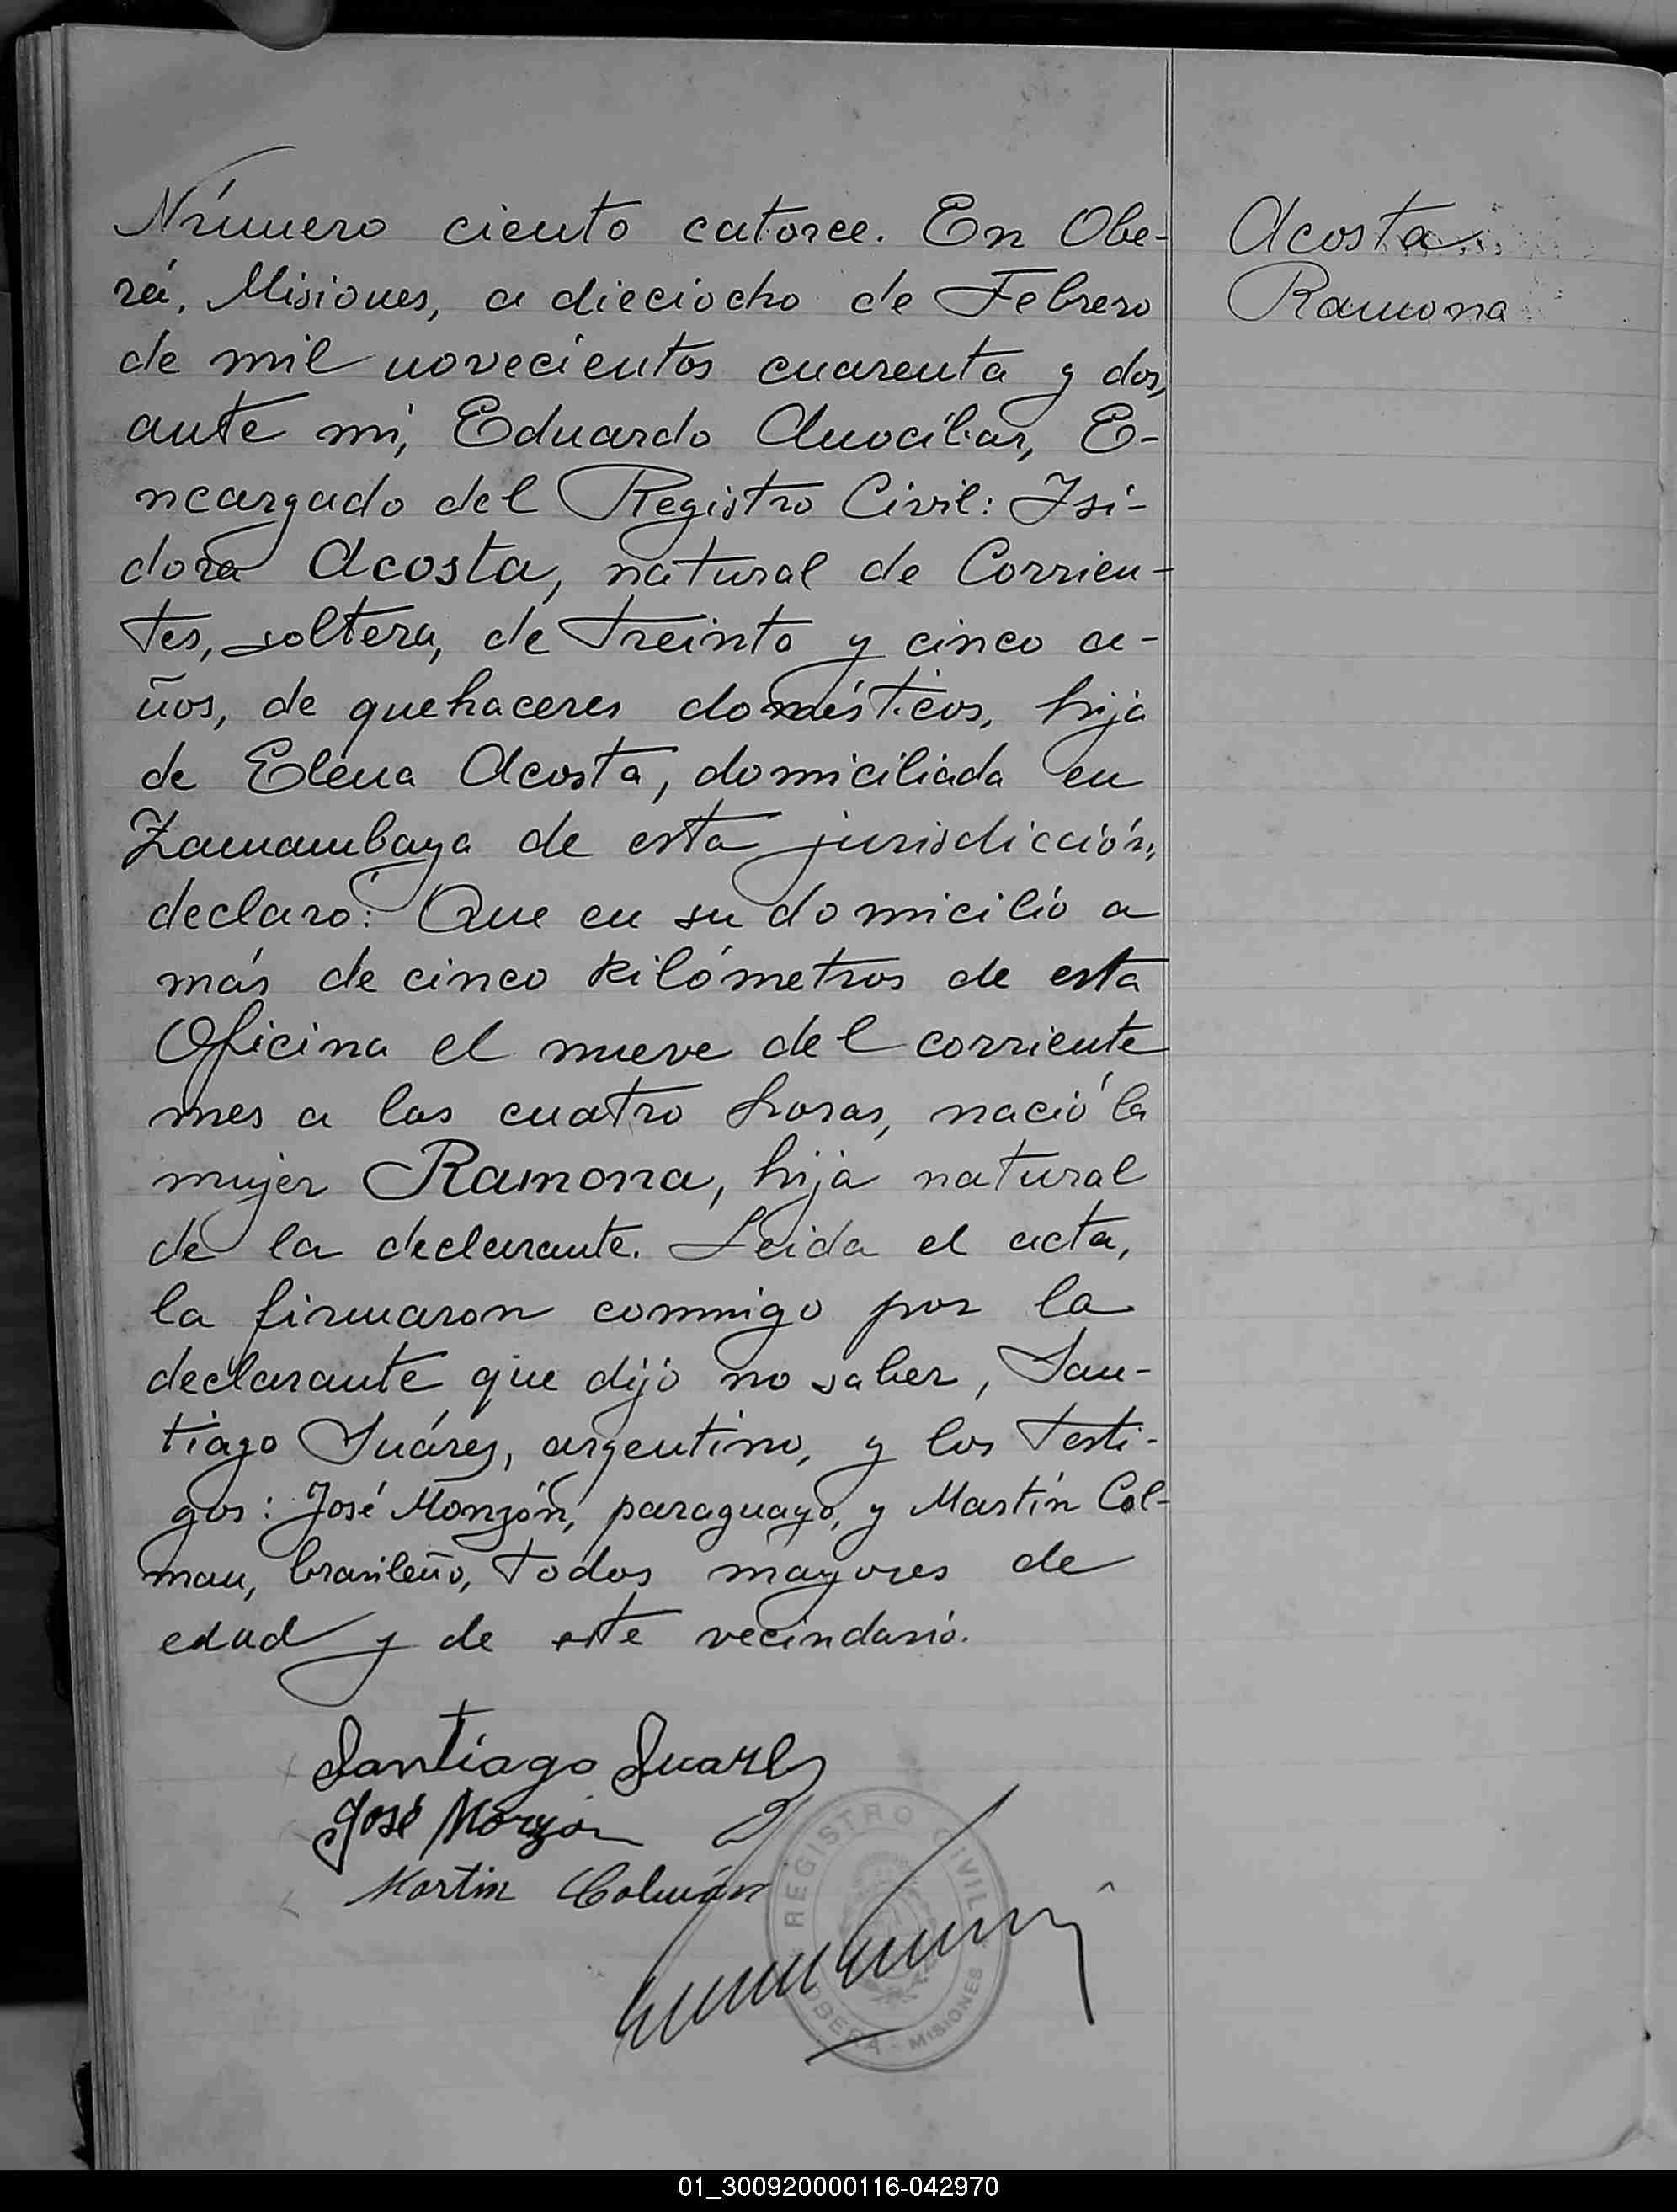 Número ciento catorce. En Obe-
rá, Misiones, a dieciocho de Febrero
de mil novecientos cuarenta y dos,
ante mí, Eduardo Anocíbar, E-
ncargado del Registro Civil: Isi-
dora Acosta, natural de Corrien-
tes, soltera, de treinta y cinco a-
ños, de quehaceres domésticos, hija
de Elena Acosta, domiciliada en
Zamambaya de esta jurisdicción,
declaró: Que en su domicilio a
más de cinco kilómetros de esta
Oficina el nueve del corriente
mes a las cuatro horas, nació la
mujer Ramona, hija natural
de la declarante. Leida el acta,
la firmaron conmigo por la
declarante que dijo no saber, San-
tiago Suárez, argentino, y los testi-
gos: José Monzón, paraguayo, y Martín Col-
man, brasileño, todos mayores de
edad y de este vecindario.
Acosta
Ramona
Santiago Suarez
José Monzon
Martin Colmán
REGISTRO CIVIL
OBERÁ - MISIONES
01_300920000116-042970